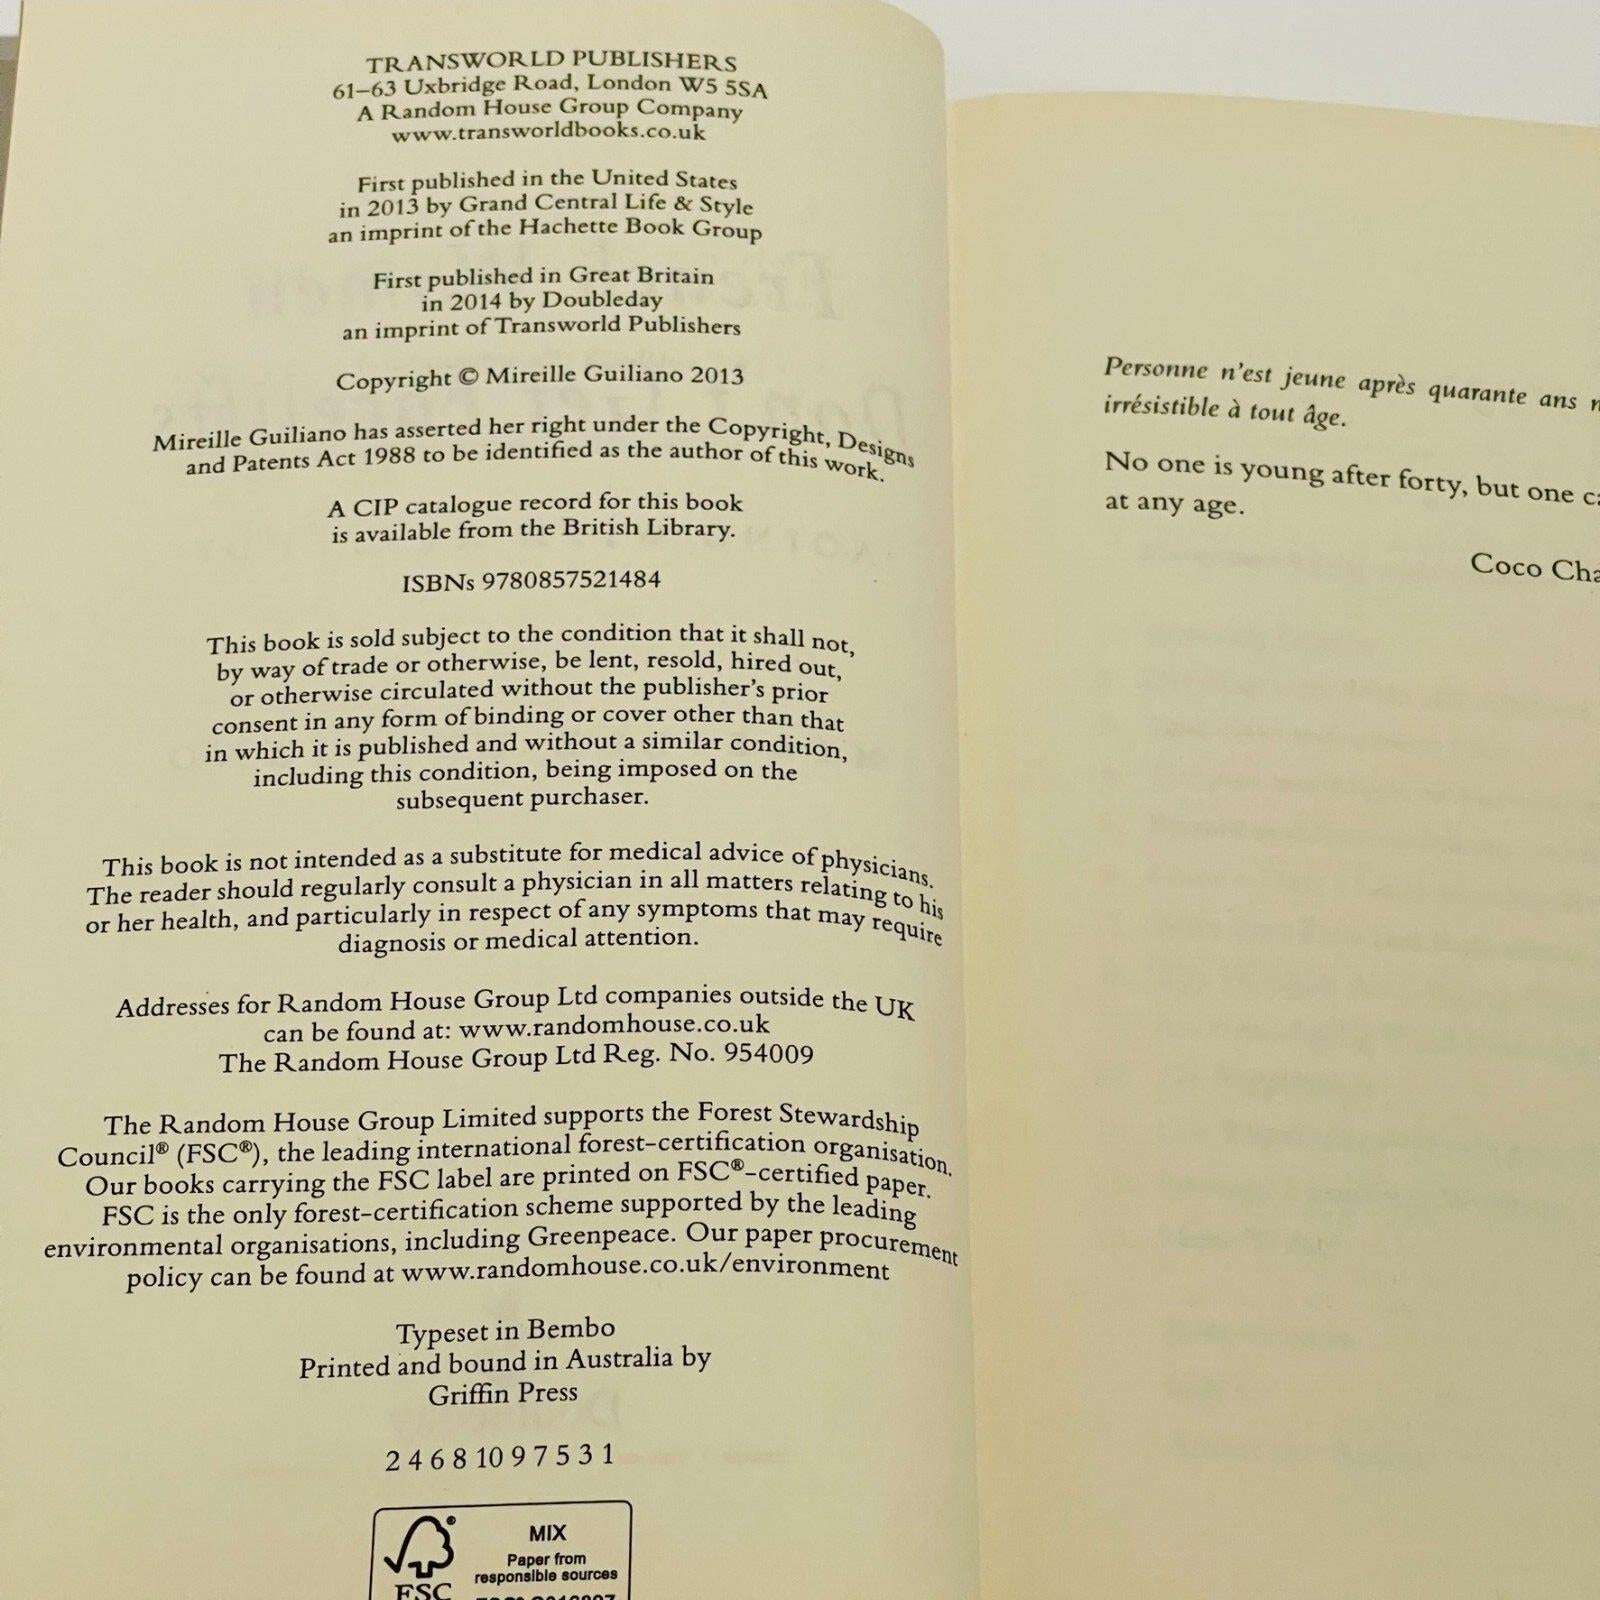 TRANSWORLD PUBLISHERS
61–63 Uxbridge Road, London W5 5SA
A Random House Group Company
www.transworldbooks.co.uk
First published in the United States
in 2013 by Grand Central Life & Style
an imprint of the Hachette Book Group
First published in Great Britain
in 2014 by Doubleday
an imprint of Transworld Publishers
Copyright © Mireille Guiliano 2013
Mireille Guiliano has asserted her right under the Copyright, Designs
and Patents Act 1988 to be identified as the author of this work.
A CIP catalogue record for this book
is available from the British Library.
ISBNs 9780857521484
This book is sold subject to the condition that it shall not,
by way of trade or otherwise, be lent, resold, hired out,
or otherwise circulated without the publisher's prior
consent in any form of binding or cover other than that
in which it is published and without a similar condition,
including this condition, being imposed on the
subsequent purchaser.
This book is not intended as a substitute for medical advice of physicians.
The reader should regularly consult a physician in all matters relating to his
or her health, and particularly in respect of any symptoms that may require
diagnosis or medical attention.
Addresses for Random House Group Ltd companies outside the UK
can be found at: www.randomhouse.co.uk
The Random House Group Ltd Reg. No. 954009
The Random House Group Limited supports the Forest Stewardship
Council® (FSC®), the leading international forest-certification organisation.
Our books carrying the FSC label are printed on FSC®-certified paper.
FSC is the only forest-certification scheme supported by the leading
environmental organisations, including Greenpeace. Our paper procurement
policy can be found at www.randomhouse.co.uk/environment
Typeset in Bembo
Printed and bound in Australia by
Griffin Press
2 4 6 8 10 9 7 5 3 1
MIX
Paper from
responsible sources
FSC
Personne n'est jeune après quarante ans
irrésistible à tout âge.
No one is young after forty, but one
at any age.
Coco